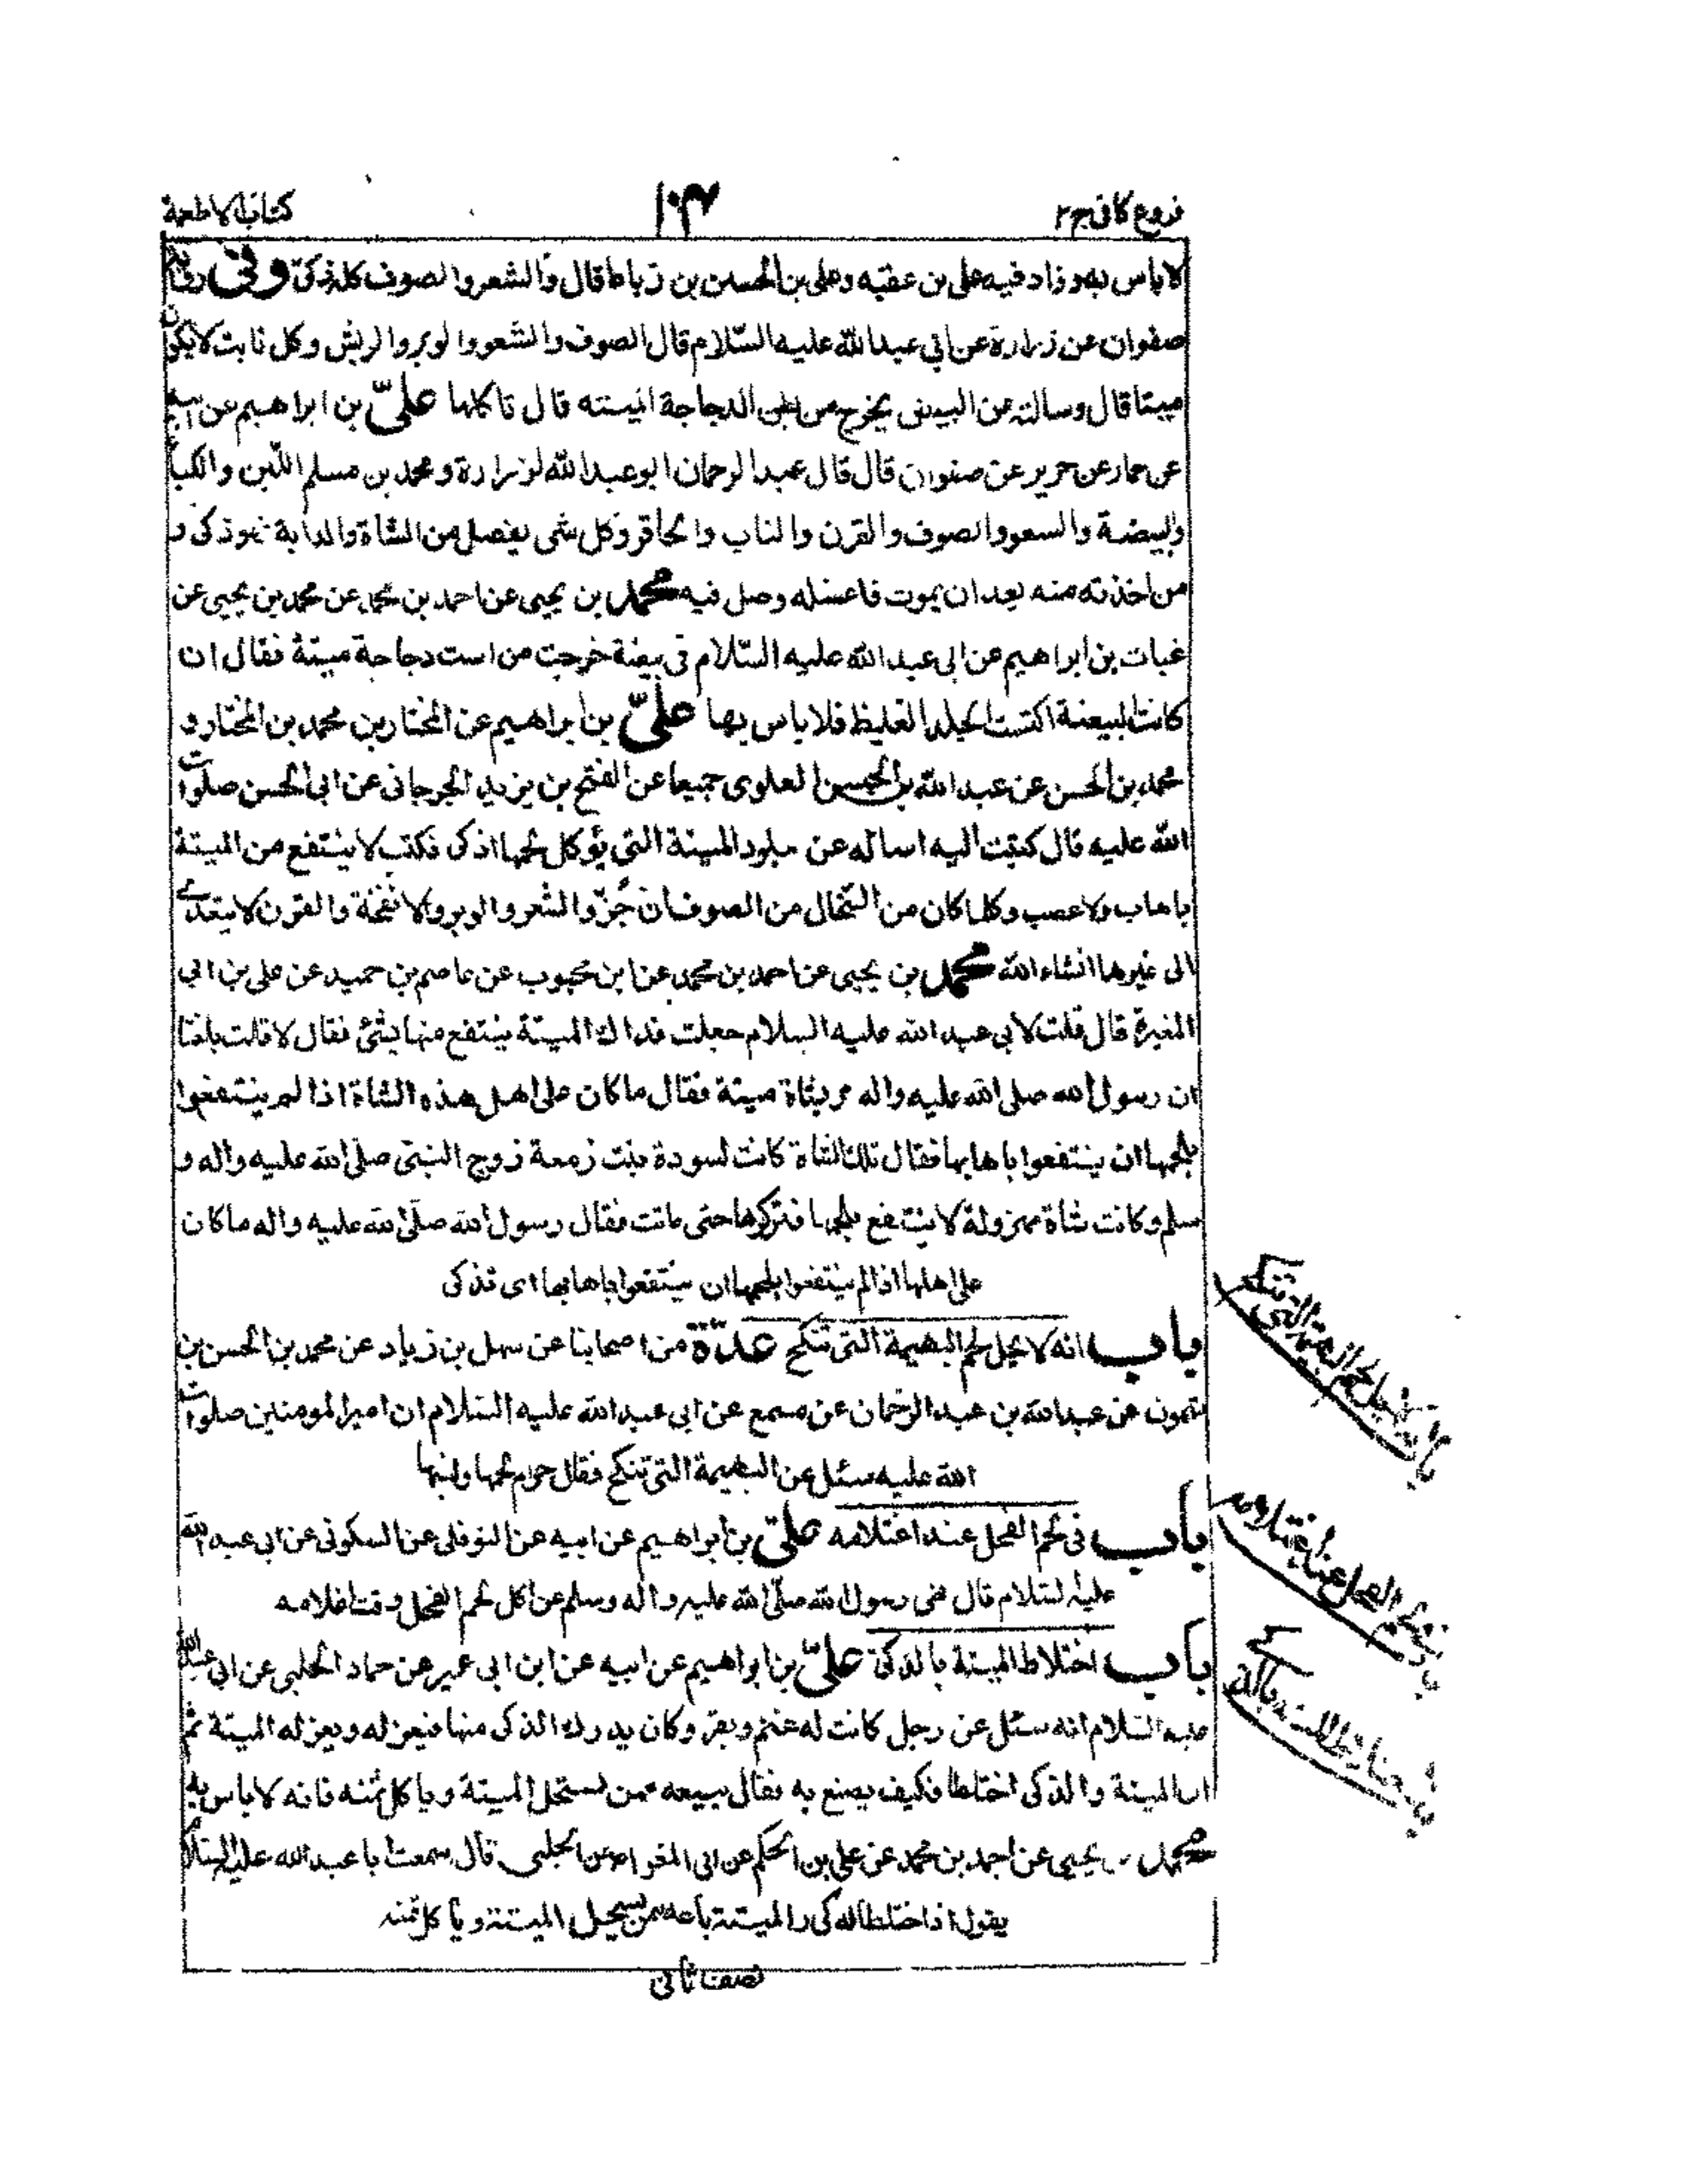 فروع کافی ج۲
۱۰۴
کتاب الاطعمة
لا باس به وزاد فيه علی بن عقبه وعلی بن الحسین بن رباط قال والشعر والصوف کله ذکی وفی روایة
صفوان عن زرارة عن ابی عبد الله علیه السّلام قال الصوف والشعر والوبر والریش وکل نابت لا یکون
میتا قال وسالته عن البیض یخرج من بطن الدجاجة المیته قال تاکلها علیّ بن ابراهیم عن ابیه
عن حماد عن حریز عن قال قال عبد الرحمان ابو عبد الله لزرارة ومحمد بن مسلم اللّبن واللّبا
والبیضة والشعر والصوف والقرن والناب والحافر وکل شی یفصل من الشاة والدابة فهو ذکی و
من اخذته منه بعد ان یموت فاغسله وصل فیه محمد بن یحیی عن احمد بن محمد عن محمد بن یحیی عن
غیاث بن ابراهیم عن ابی عبد الله علیه السّلام فی بیضة خرجت من است دجاجة میتة فقال ان
کانت البیضة اکتست الجلد الغلیظ فلا باس بها علیّ بن ابراهیم عن المختار بن محمد بن المختار و
محمد بن الحسن عن عبد الله بن الحسن العلوی جمیعا عن الفتح بن یزید الجرجانی عن ابی الحسن صلوات
الله علیه قال کتبت الیه اساله عن جلود المیتة التی یؤکل لحمها اذکی فکتب لا ینتفع من المیتة
باهاب ولا عصب وکلما کان من السخال من الصوف ان جُزّ والشعر والوبر والانفخة والقرن لا یتعدی
الی غیرها انشاء الله محمد بن یحیی عن احمد بن محمد عن ابن محبوب عن عاصم بن حمید عن علی بن ابی
المغیرة قال قلت لابی عبد الله علیه السلام جعلت فداك المیتة ینتفع منها بشئ فقال لا قلت بلغنا
ان رسول الله صلی الله علیه واله مر بشاة میتة فقال ما کان علی اهل هذه الشاة اذا لم ینتفعوا
بلحمها ان ینتفعوا باهابها فقال تلك الشاة کانت لسودة بنت زمعة زوج النبی صلی الله علیه واله و
سلم وکانت شاة مهزولة لا ینتفع بلحمها فترکوها حتی ماتت فقال رسول الله صلّی الله علیه واله ما کان
علی اهلها اذا لم ینتفعوا بلحمها ان ینتفعوا باهابها ای تذکی
باب انه لا یحل لحم البهیمة التی تنکح عدّة من اصحابنا عن سهل بن زیاد عن محمد بن الحسن بن
شمون عن عبد الله بن عبد الرحمان عن مسمع عن ابی عبد الله علیه السّلام ان امیر المومنین صلوات
الله علیه سئل عن البهیمة التی تنکح فقال حرام لحمها ولبنها
باب فی لحم الفحل عند اغتلامه علیّ بن ابراهیم عن ابیه عن النوفلی عن السکونی عن ابی عبد الله
علیه السّلام قال نهی رسول الله صلّی الله علیه واله وسلم عن اکل لحم الفحل وقت اغتلامه
باب اختلاط المیتة بالذکی علیّ بن ابراهیم عن ابیه عن ابن ابی عمیر عن حماد الحلبی عن ابی عبد الله
علیه السّلام انه سئل عن رجل کانت له غنم وبقر وکان یدرك الذکی منها فیعزله ویعزله المیتة ثم
ان المیتة والذکی اختلطا فکیف یصنع به فقال یبیعه ممن یستحل المیتة ویاکل ثمنه فانه لا باس به
محمد بن یحیی عن احمد بن محمد عن علی بن الحکم عن ابی المغرا عن الحلبی قال سمعت ابا عبد الله علیه السّلام
یقول اذا اختلط الذکی والمیتة باعه ممن یستحل المیتة ویاکل ثمنه
نصف ثانی